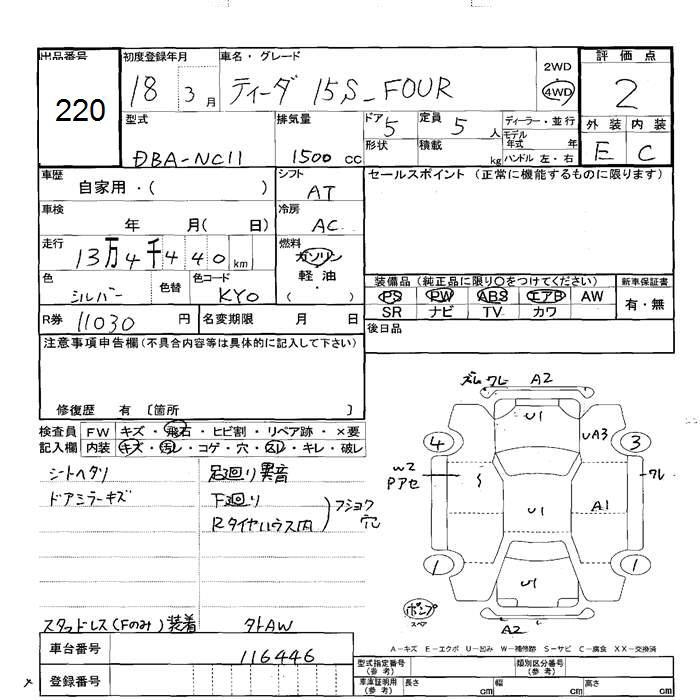 出品番号
220
初度登録年月
18 3月
車名・グレード
ティーダ 15S_FOUR
2WD
4WD
評価点
2
外装 内装
E C
型式
DBA-NC11
排気量
1500 cc
ドア 5
定員 5 人
形状
積載 kg
ディーラー・並行
モデル年式 年
ハンドル 左・右
車歴
自家用・( )
シフト
AT
車検
年 月( 日)
冷房
AC
走行
13万4千440km
燃料
ガソリン
軽・油
( )
色
シルバー
色替
色コード
KY0
R券 11030 円
名変期限 月 日
セールスポイント(正常に機能するものに限ります)
装備品(純正品に限り○をつけてください)
PS PW ABS エアB AW
SR ナビ TV カワ
新車保証書
有・無
後日品
注意事項申告欄(不具合内容等は具体的に記入して下さい)
修復歴 有 〔箇所 〕
検査員記入欄
FW キズ・飛石・ヒビ割・リペア跡・×要
内装 キズ・汚レ・コゲ・穴・凹レ・キレ・破レ
シートヘタリ
ドアミラーキズ
足廻り異音
下廻り
Rタイヤハウス内
フショク穴
スタッドレス(Fのみ)装着
外AW
ズレ ワレ A2
U1
UA3
4
3
W2
Pアセ
ワレ
U1
A1
1
1
U1
ポンプ
スペア
A2
A-キズ E-エクボ U-凹み W-補修跡 S-サビ C-腐食 XX-交換済
車台番号
116446
登録番号
型式指定番号(参考)
類別区分番号(参考)
車庫証明用(参考)
長さ cm 幅 cm 高さ cm